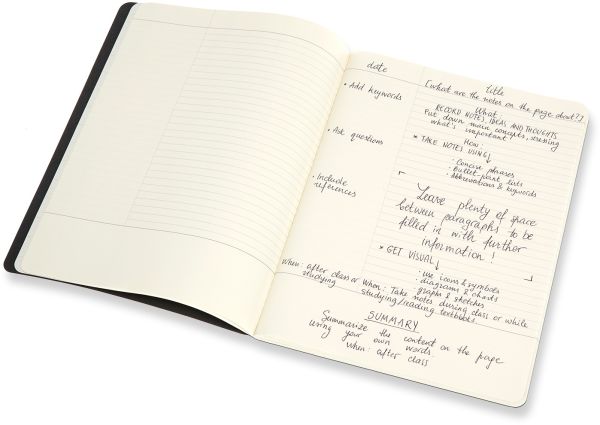 date
title
[What are the notes on the page about?]
• Add keywords
• Ask questions
• Include
references
When: after class or
studying
What:
RECORD NOTES, IDEAS AND THOUGHTS
Put down main concepts, stressing
what's important
How:
* TAKE NOTES USING↓
• Concise phrases
• Bullet-point lists
• Abbreviations & keywords
Leave plenty of space
between paragraphs to be
filled in with further
information!
* GET VISUAL↓
• use icons & symbols
• diagrams & charts
• graphs & sketches
When: Take notes during class or while
studying/reading textbooks.
SUMMARY
Summarize the content on the page
using your own words
When: after class